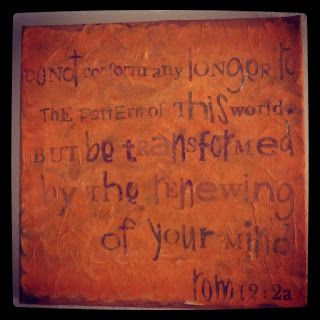 DO NOt conform any lONgOr to
THe pattern of THis world.
BUT be tRansforMed
by THe reNewing
of your MiNd
rom 12:2a